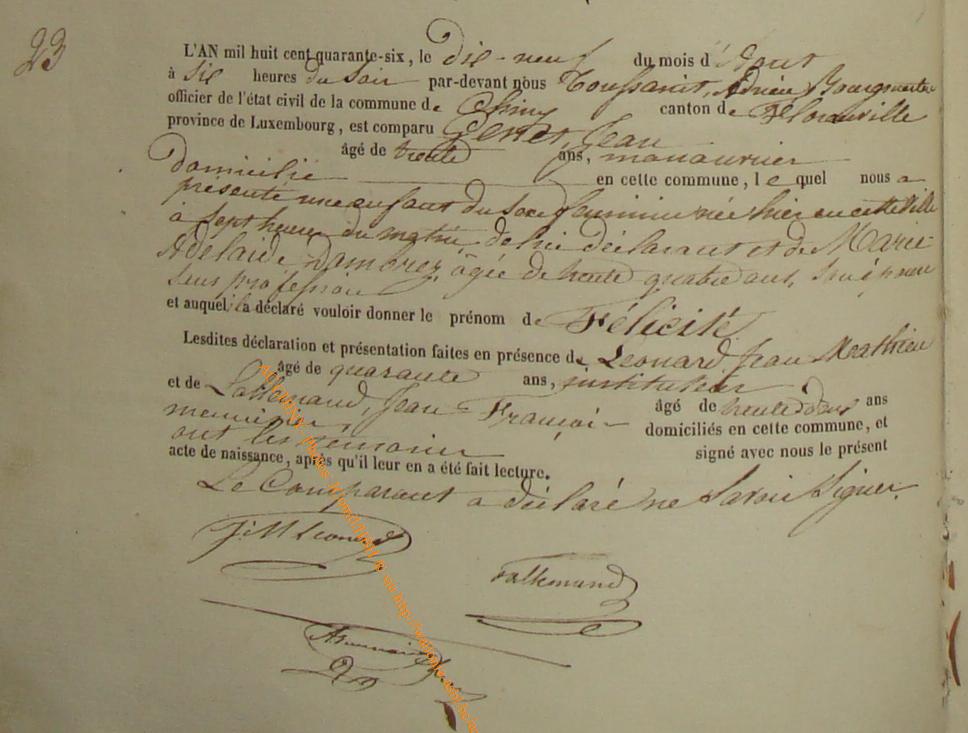 23
L'AN mil huit cent quarante-six, le Dix-neuf du mois d'Aout
à six heures du soir par-devant nous Toussaint, Adrien Bourgmestre
officier de l'état civil de la commune de Chiny canton de Florenville
province de Luxembourg, est comparu Jean
âgé de trente ans, manouvrier
domicilié en cette commune, lequel nous a
présenté une enfant du sexe feminin née hier en cette ville
à sept heures du matin, de lui déclarant et de Marie
Adelaide Dambrez, âgée de trente quatre ans, son épouse
sans profession
et auquel il a déclaré vouloir donner le prénom de Félicité
Lesdites déclaration et présentation faites en présence de Leonard, Jean Mathieu
âgé de quarante ans, instituteur
et de Lallemand, Jean François âgé de trente ans
meunier, domiciliés en cette commune, et
ont les temoins signé avec nous le présent
acte de naissance, après qu'il leur en a été fait lecture.
Le Comparant a déclaré ne savoir signer.
JM Leonard
Lallemand